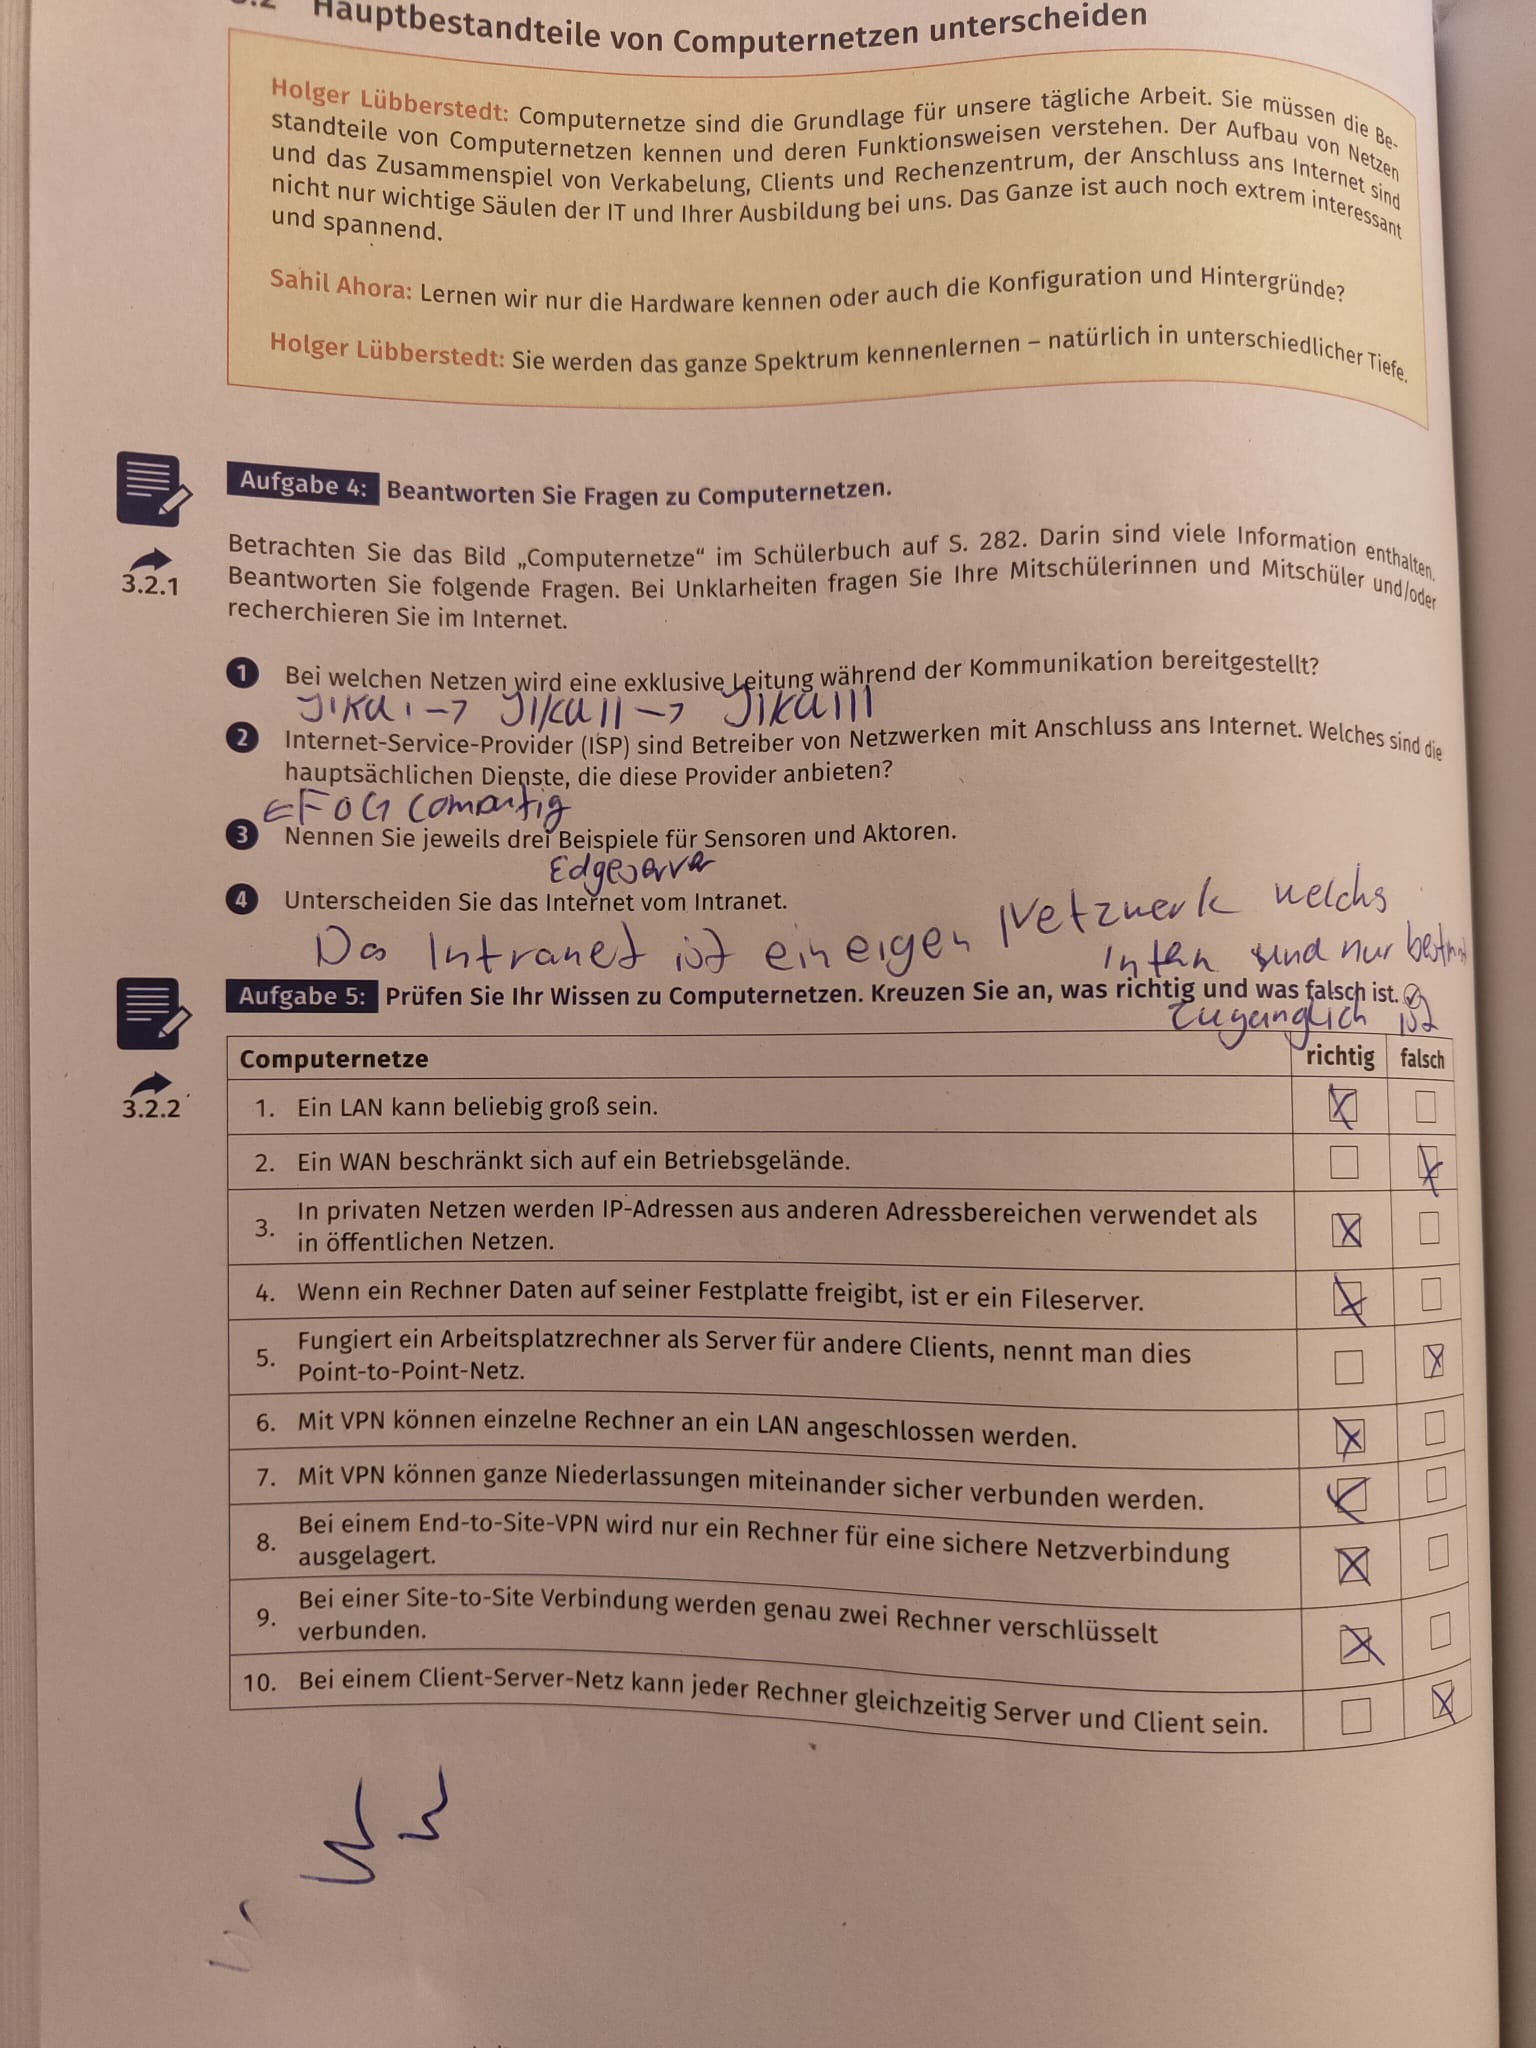 3.2 Hauptbestandteile von Computernetzen unterscheiden
Holger Lübberstedt: Computernetze sind die Grundlage für unsere tägliche Arbeit. Sie müssen die Be-
standteile von Computernetzen kennen und deren Funktionsweisen verstehen. Der Aufbau von Netzen
und das Zusammenspiel von Verkabelung, Clients und Rechenzentrum, der Anschluss ans Internet sind
nicht nur wichtige Säulen der IT und Ihrer Ausbildung bei uns. Das Ganze ist auch noch extrem interessant
und spannend.
Sahil Ahora: Lernen wir nur die Hardware kennen oder auch die Konfiguration und Hintergründe?
Holger Lübberstedt: Sie werden das ganze Spektrum kennenlernen – natürlich in unterschiedlicher Tiefe.
Aufgabe 4: Beantworten Sie Fragen zu Computernetzen.
3.2.1
Betrachten Sie das Bild „Computernetze“ im Schülerbuch auf S. 282. Darin sind viele Information enthalten.
Beantworten Sie folgende Fragen. Bei Unklarheiten fragen Sie Ihre Mitschülerinnen und Mitschüler und/oder
recherchieren Sie im Internet.
1 Bei welchen Netzen wird eine exklusive Leitung während der Kommunikation bereitgestellt?
2 Internet-Service-Provider (ISP) sind Betreiber von Netzwerken mit Anschluss ans Internet. Welches sind die
hauptsächlichen Dienste, die diese Provider anbieten?
3 Nennen Sie jeweils drei Beispiele für Sensoren und Aktoren.
Edgeserver
4 Unterscheiden Sie das Internet vom Intranet.
Das Intranet ist ein eigen Netzwerk welchs
Intern und nur
zugänglich ist
Aufgabe 5: Prüfen Sie Ihr Wissen zu Computernetzen. Kreuzen Sie an, was richtig und was falsch ist.
3.2.2
Computernetze richtig falsch
1. Ein LAN kann beliebig groß sein.
2. Ein WAN beschränkt sich auf ein Betriebsgelände.
3. In privaten Netzen werden IP-Adressen aus anderen Adressbereichen verwendet als
in öffentlichen Netzen.
4. Wenn ein Rechner Daten auf seiner Festplatte freigibt, ist er ein Fileserver.
5. Fungiert ein Arbeitsplatzrechner als Server für andere Clients, nennt man dies
Point-to-Point-Netz.
6. Mit VPN können einzelne Rechner an ein LAN angeschlossen werden.
7. Mit VPN können ganze Niederlassungen miteinander sicher verbunden werden.
8. Bei einem End-to-Site-VPN wird nur ein Rechner für eine sichere Netzverbindung
ausgelagert.
9. Bei einer Site-to-Site Verbindung werden genau zwei Rechner verschlüsselt
verbunden.
10. Bei einem Client-Server-Netz kann jeder Rechner gleichzeitig Server und Client sein.